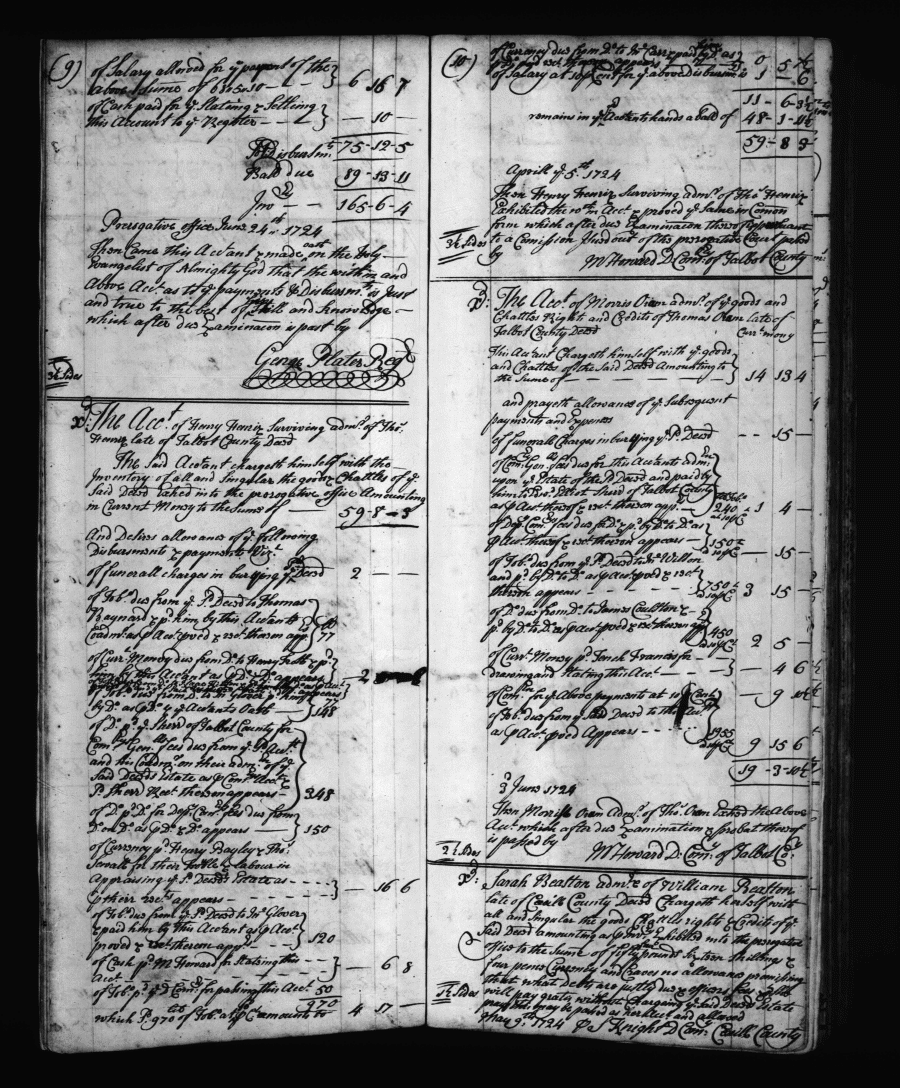 (9)
of Salary allowed for ye payment of the
above Sume of
6 16 7
of Cash paid for ye Stating & Settling
this Account to ye Register — — 10 —
Disbursmts 75-12-5
Balla due 89-13-11
Invry — — 165-6-4
Preregative office June 24th 1724
Then Came this Acctant & made oath on the holy
Evangelist of Almighty God that the within and
Above Acct. as to ye payments & Disbursmts is Just
and true to the best of his Skill and knowledge —
which after due Examinacon is past by
George Plater Regr
3½ Sides
xd: The Acct. of Henry Henrix Surviving admr. of Tho.
Henrix late of Talbot County Decd
The Said Acctant chargeth himself with the
Inventory of all and Singular the goods & Chattles of ye
Said Decd taked into the prerogative office Amounting
in Current Money to the Sume of — — 59-8-3
And Desires allowance of ye following
Disbursments & payments Vizt.
of funerall charges in burying ye Decd 2 — —
of Tobo. due from ye sd. Decd to Thomas
Baynard & pd. him by this Acctant
Coadmr. as p Acct. proved & rect. thereon app. 77
of Curr. Money due from Do. to Henry
him by this Acctant as p Do. & Do. appears — 2
by Do. as p Do. & ye Acctants Oath — 148
of Do. pd. ye Sherr of Talbot County for
Comry Genlls fees due from ye sd. Acct.
and this Coadmr. on their admr. of ye
Said Decds Estate as p Comry Acct. &
sd. Sherr Rect thereon appears — 348
of Do. pd. Do. for Depty Comry fees due from
Do. on Do. as p Do. & Do. appears — 150
of Currency pd. Henry Bayley & Tho.
for their trouble & labour in
Appraising ye sd. Decds Estate as
p their rects. appears — — 16 6
of Tobo. due from ye sd. Decd to Mr. Glover
& paid him by this Acctant as p Acct.
proved & rect. thereon appr. — 120
of Cash pd. M Howard for Stating this
Acct. — — 6 8
of Tobo. pd. ye Do. Comry for passing this Acct. 50
970
which sd. 970 lb of Tobo. at p C amounts to 4 17 —
(10)
of Currency due from Do. to Mr. Carr & paid by Do. as
appears 0 5
of Salary at 10 p Cent for ye above disbursmts is 1 - 6
11 - 6 - 3½
remains in ye Acctants hands a ball of 48 - 1 - 11½
59 - 8 3
Aprill ye 5th 1724
Then Henry Henrix Surviving admr. of Tho. Henrix
Exhibited the within Acct. & proved ye Same in Comon
form which after due Examinacon thereof pursuant
to a Comission Issued out of the prerogative Court passed
by M Howard D Comry of Talbot County
3½ Sides
xd: The Acct. of Morris Orem admr. of ye goods and
Chattles Rights and Credits of Thomas Orem late of
Talbot County Decd
Currt mony
This Acctant Chargeth himself with ye goods
and Chattles of the Said Decd Amounting to
the Sume of — — — 14 13 4
and prayeth allowance of ye Subsequent
payments and Expences
of funerall Charges in burying ye sd. Decd — 15 —
of Comry Genls fees due for this Acctants admr.
upon ye Estate of the sd. Decd and paid by
him to Sherr of Talbot County
as p Acct. thereof & rect. thereon app. — 240 1 4 —
of Depty Comry fees due Do. & pd. by Do. to Do. as
p Acct. thereof & rect. thereon appears — 150 — 15 —
of Tobo. due from ye sd. Decd to Mr. Willson
and pd. by Do. to Do. as p Acct. proved & rect.
thereon appears — 750 3 15 —
of Do. due from Do. to James Caulston &
pd. by Do. to Do. as p Acct. proved & rect. thereon app. 450 2 5
of Currt. Money pd. Francis for
drawing and Stating this Acct. — — 4 6
of Comicon for ye Above payments at 10 p Cent — 9 10½
of Tobo. due from ye Said Decd to the Acct.
as p Acct. proved Appears — — 1955 9 15 6
19 - 3 - 10½
3d June 1724
Then Morriss Orem Admr. of Tho. Orem Exhted the Above
Acct. which after due Examination & probat thereof
is passed by M Howard D. Comry of Talbot Co.
2½ Sides
xd: Sarah Beaston admrx of William Beaston
late of Cecill County Decd Chargeth herself with
all and Singular the goods Chattles rights & Credits of ye
Said Decd amounting as p Inventory Exhibited into the prerogative
office to the Sume of fifty pounds Sixteen Shillings &
four pence Currency and Craves no allowance promising
that what debts are justly due & officers fees
will pay gratis without Chargeing ye Said Decds Estate
prays this may be passed as her Acct. and allowed
May 9th. 1724 p S Knight D Comry Cecill County
½ Sides